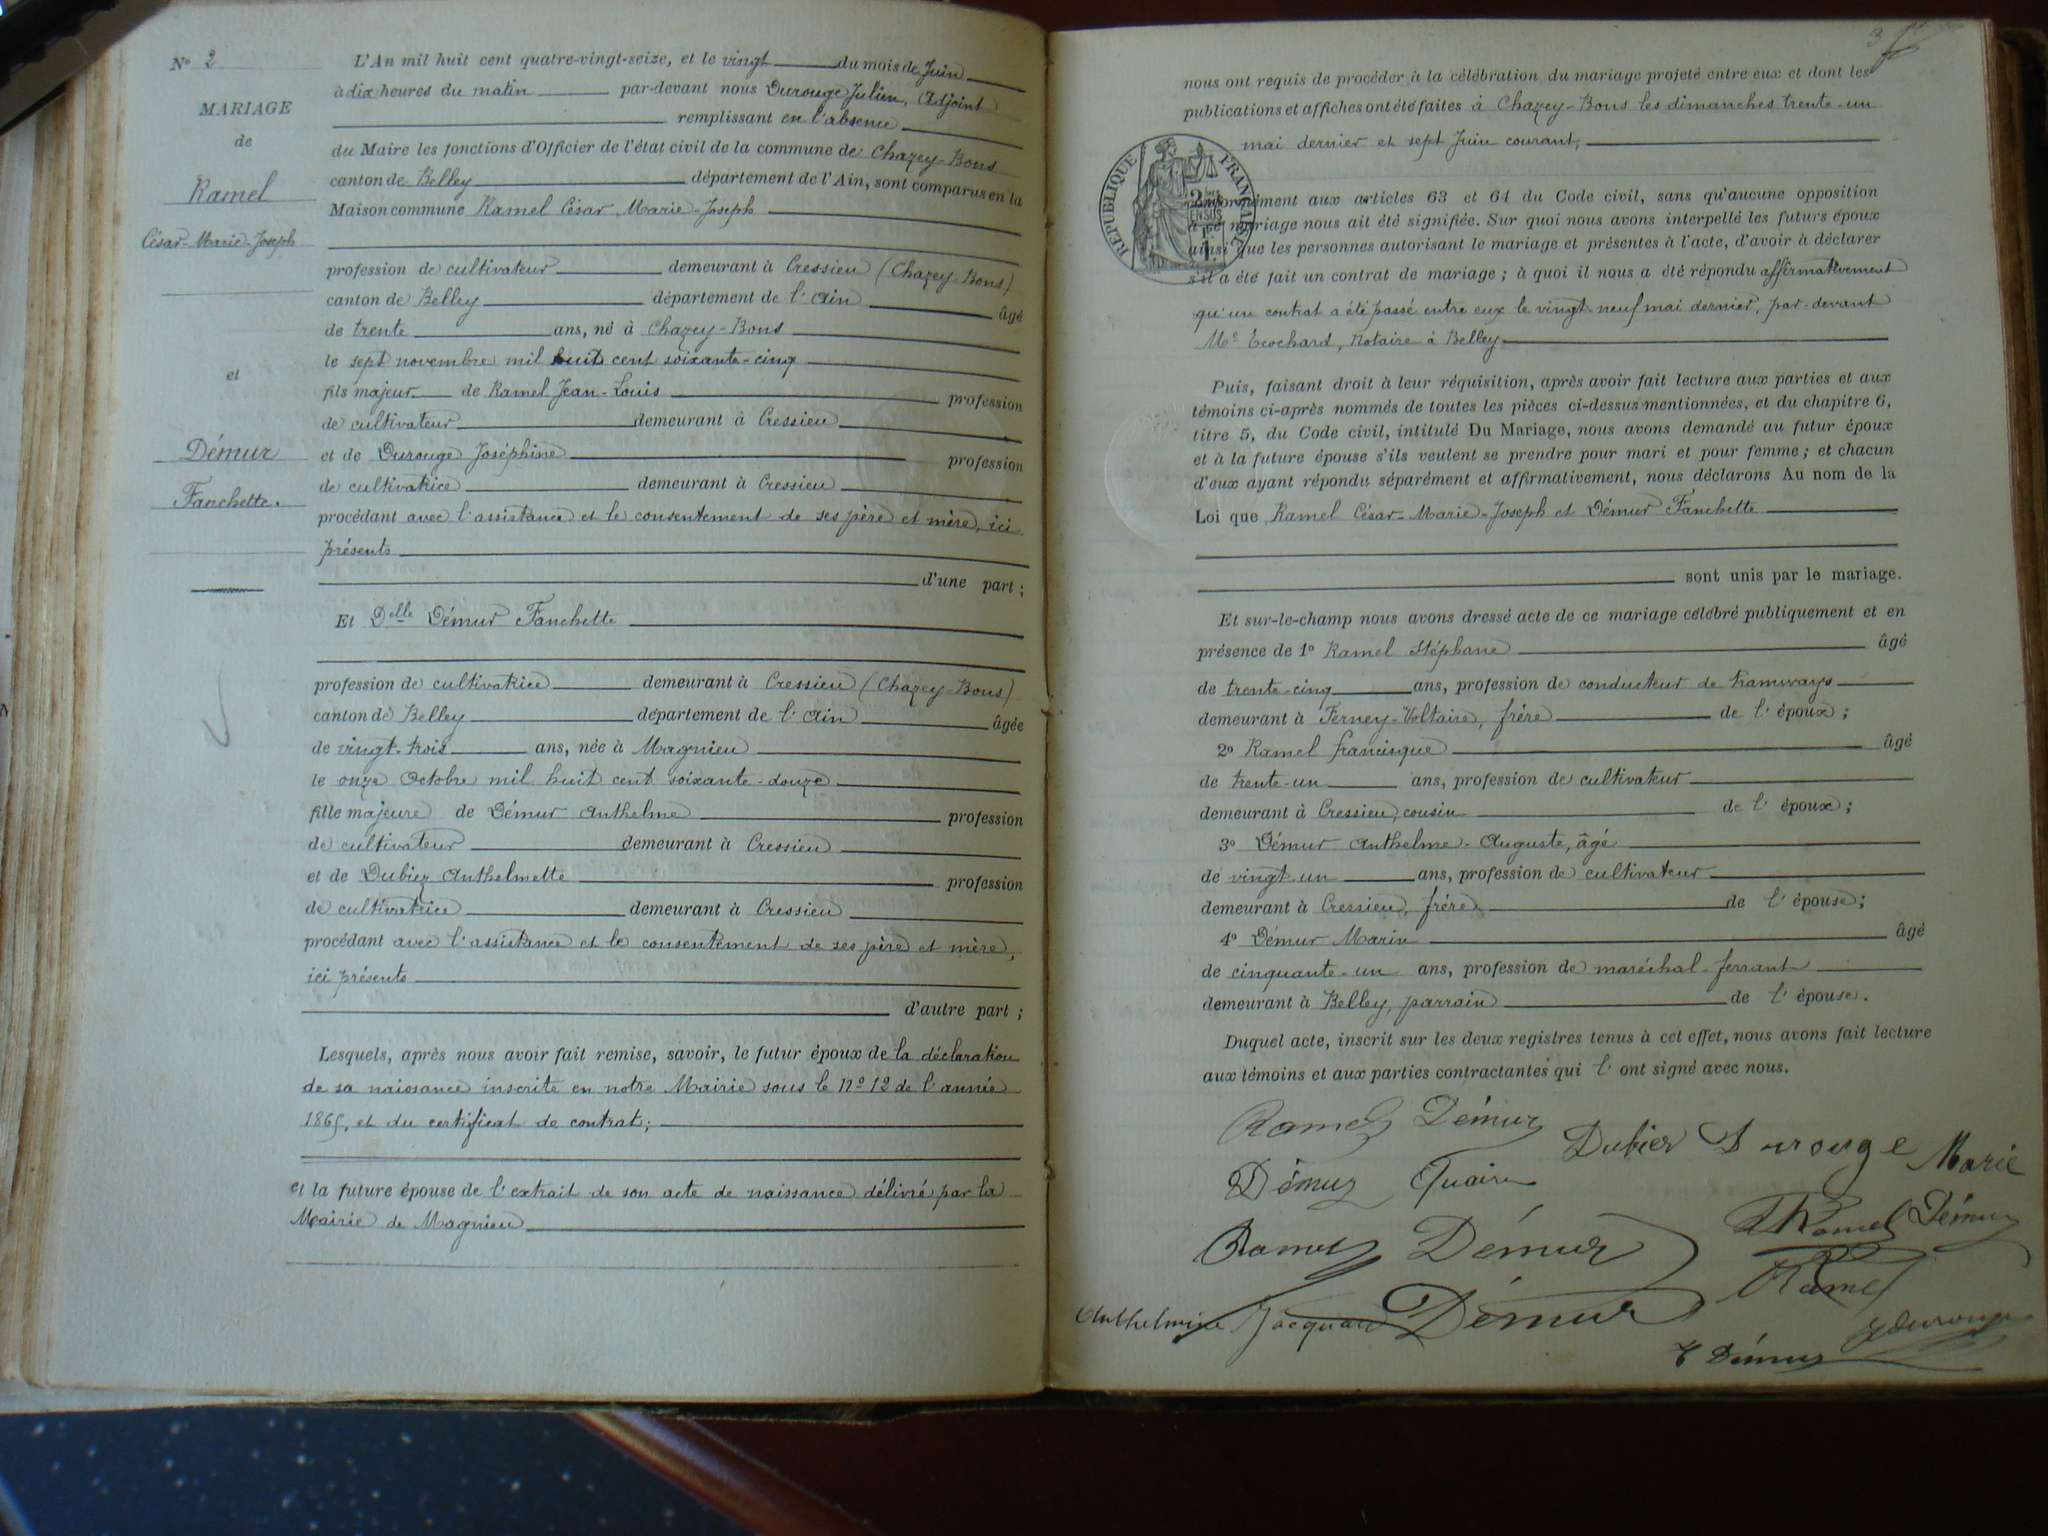 N° 2
MARIAGE
de
Ramel
César-Marie-Joseph
et
Démur
Fanchette.
L'An mil huit cent quatre-vingt-seize, et le vingt du mois de Juin
à dix heures du matin par-devant nous Durouge Julien, Adjoint
remplissant en l'absence
du Maire les fonctions d'Officier de l'état civil de la commune de Chazey-Bons
canton de Belley département de l'Ain, sont comparus en la
Maison commune Ramel César-Marie-Joseph
profession de cultivateur demeurant à Cressieu (Chazey-Bons)
canton de Belley département de l'Ain âgé
de trente ans, né à Chazey-Bons
le sept novembre mil huit cent soixante-cinq
fils majeur de Ramel Jean-Louis profession
de cultivateur demeurant à Cressieu
et de Durouge Joséphine profession
de cultivatrice demeurant à Cressieu
procédant avec l'assistance et le consentement de ses père et mère, ici
présents
d'une part ;
Et Delle Démur Fanchette
profession de cultivatrice demeurant à Cressieu (Chazey-Bons)
canton de Belley département de l'Ain âgée
de vingt-trois ans, née à Magnieu
le onze Octobre mil huit cent soixante-douze
fille majeure de Démur Anthelme profession
de cultivateur demeurant à Cressieu
et de Dubiez Anthelmette profession
de cultivatrice demeurant à Cressieu
procédant avec l'assistance et le consentement de ses père et mère,
ici présents
d'autre part ;
Lesquels, après nous avoir fait remise, savoir, le futur époux de la déclaration
de sa naissance inscrite en notre Mairie sous le N° 12 de l'année
1865, et du certificat de contrat;
et la future épouse de l'extrait de son acte de naissance délivré par la
Mairie de Magnieu
3
nous ont requis de procéder à la célébration du mariage projeté entre eux et dont les
publications et affiches ont été faites à Chazey-Bons les dimanches trente-un
mai dernier et sept Juin courant,
RÉPUBLIQUE FRANÇAISE
conformément aux articles 63 et 64 du Code civil, sans qu'aucune opposition
à ce mariage nous ait été signifiée. Sur quoi nous avons interpellé les futurs époux
ainsi que les personnes autorisant le mariage et présentes à l'acte, d'avoir à déclarer
s'il a été fait un contrat de mariage ; à quoi il nous a été répondu affirmativement
qu'un contrat a été passé entre eux le vingt-neuf mai dernier, par-devant
Me Ecochard, Notaire à Belley
Puis, faisant droit à leur réquisition, après avoir fait lecture aux parties et aux
témoins ci-après nommés de toutes les pièces ci-dessus mentionnées, et du chapitre 6,
titre 5, du Code civil, intitulé Du Mariage, nous avons demandé au futur époux
et à la future épouse s'ils veulent se prendre pour mari et pour femme ; et chacun
d'eux ayant répondu séparément et affirmativement, nous déclarons Au nom de la
Loi que Ramel César-Marie-Joseph et Démur Fanchette
sont unis par le mariage.
Et sur-le-champ nous avons dressé acte de ce mariage célébré publiquement et en
présence de 1° Ramel Stéphane âgé
de trente-cinq ans, profession de conducteur de tramways
demeurant à Ferney-Voltaire, frère de l'époux ;
2° Ramel francisque âgé
de trente-un ans, profession de cultivateur
demeurant à Cressieu, cousin de l'époux ;
3° Démur Anthelme-Auguste, âgé
de vingt-un ans, profession de cultivateur
demeurant à Cressieu, frère de l'épouse ;
4° Démur Marin âgé
de cinquante-un ans, profession de maréchal-ferrant
demeurant à Belley, parrain de l'épouse.
Duquel acte, inscrit sur les deux registres tenus à cet effet, nous avons fait lecture
aux témoins et aux parties contractantes qui l'ont signé avec nous.
Ramel Démur
Dubier Durouge Marie
Démur
Ramel Démur Ramel Démur
Ramel
Anthelmine Jacquard Démur
J Durouge
Démur